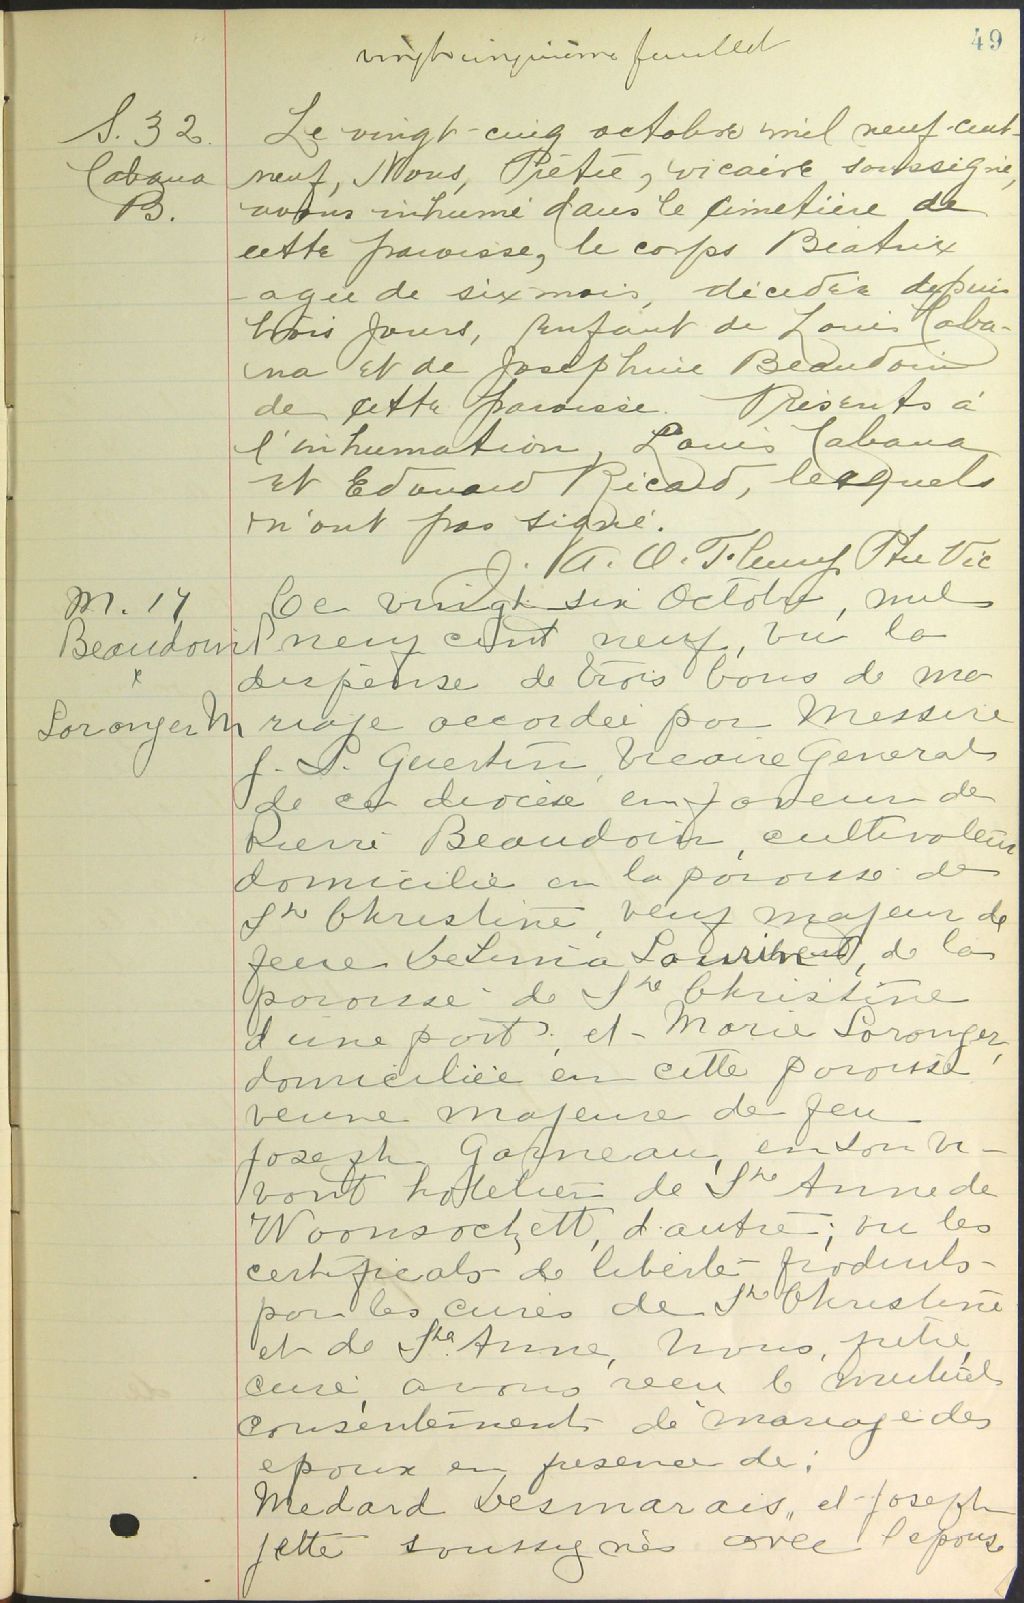 vingt cinquième feuillet
49
S. 32.
Cabana
B.
Le vingt-cinq octobre mil neuf-cent-
neuf, Nous, Prêtre, vicaire soussigné,
avons inhumé dans le cimetière de
cette paroisse, le corps Béatrix
agée de six mois, décédée depuis
trois jours, enfant de Louis Caba-
na et de Josephine Beaudoin
de cette paroisse. Présents à
l'inhumation, Louis Cabana
et Edouard Ricard, lesquels
n'ont pas signé.
J. A. O. Fleury Ptre Vic
M. 17
Beaudoin P
x
Loranger M
Ce vingt six Octobre, mil
neuf cent neuf, vu la
dispense de trois bans de ma
riage accordée par Messire
J. P. Guertin, Vicaire General
de ce diocèse en faveur de
Pierre Beaudoin, cultivateur
domicilié en la paroisse de
Ste Christine, veuf majeur de
feue Delima, de la
paroisse de Ste Christine
d'une part, et Marie Loranger,
domiciliée en cette paroisse
veuve majeure de feu
Joseph Garneau, en son vi-
vant hotelier de Ste Anne de
Woonsockett, d'autre; vu les
certificats de liberté produits
par les curés de Ste Christine
et de Ste Anne, Nous, prêtre,
curé, avons reçu le mutuel
consentement de mariage des
epoux en presence de:
Medard Desmarais, et Joseph
Jetté soussignés avec l'epouse